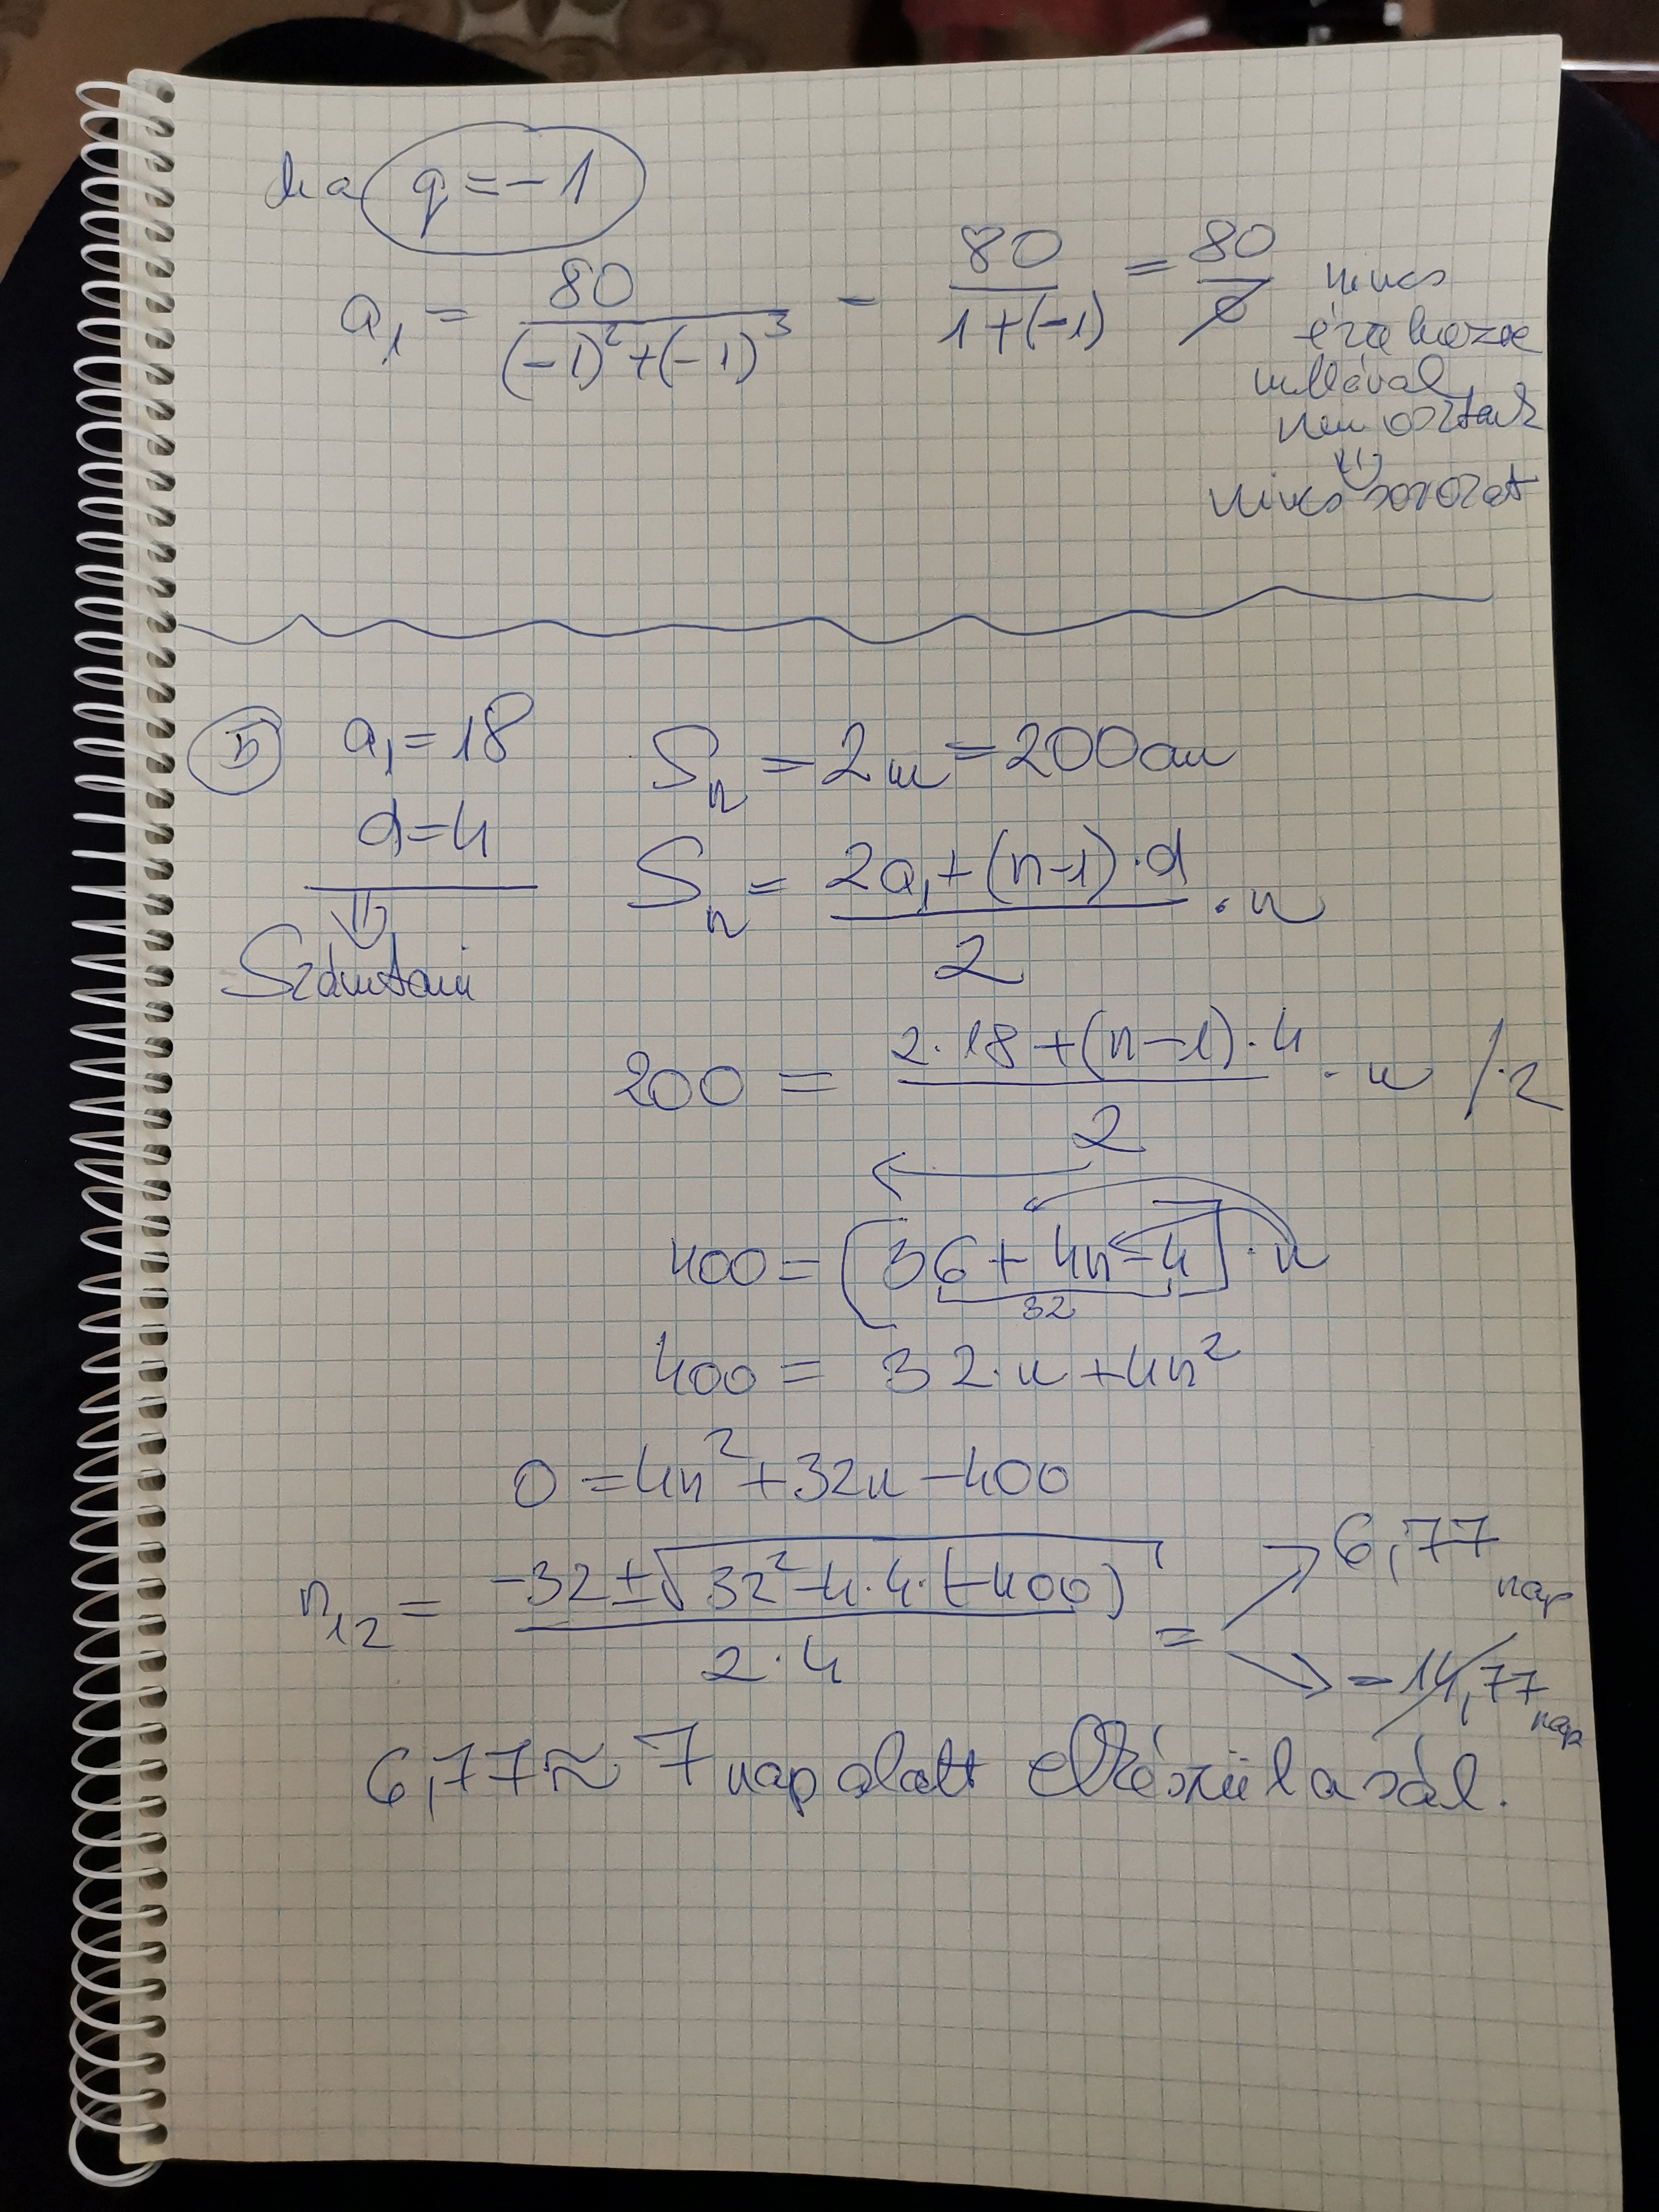 ha q = -1
a₁ = 80 / ((-1)² + (-1)³) = 80 / (1+(-1)) = 80 / 0 nincs
nullával
nem osztunk
⇓
nincs sorozat
5 a₁ = 18 Sₙ = 2m = 200cm
d = 4 Sₙ = (2a₁ + (n-1)·d) / 2 · n
⇓
Számtani
200 = (2·18 + (n-1)·4) / 2 · n /·2
400 = [36 + 4n - 4] · n
32
400 = 32·n + 4n²
0 = 4n² + 32n - 400
n₁₂ = (-32 ± √(32² - 4·4·(-400))) / (2·4) = 6,77 nap
-14,77 nap
6,77 ≈ 7 nap alatt elkészül a sál.